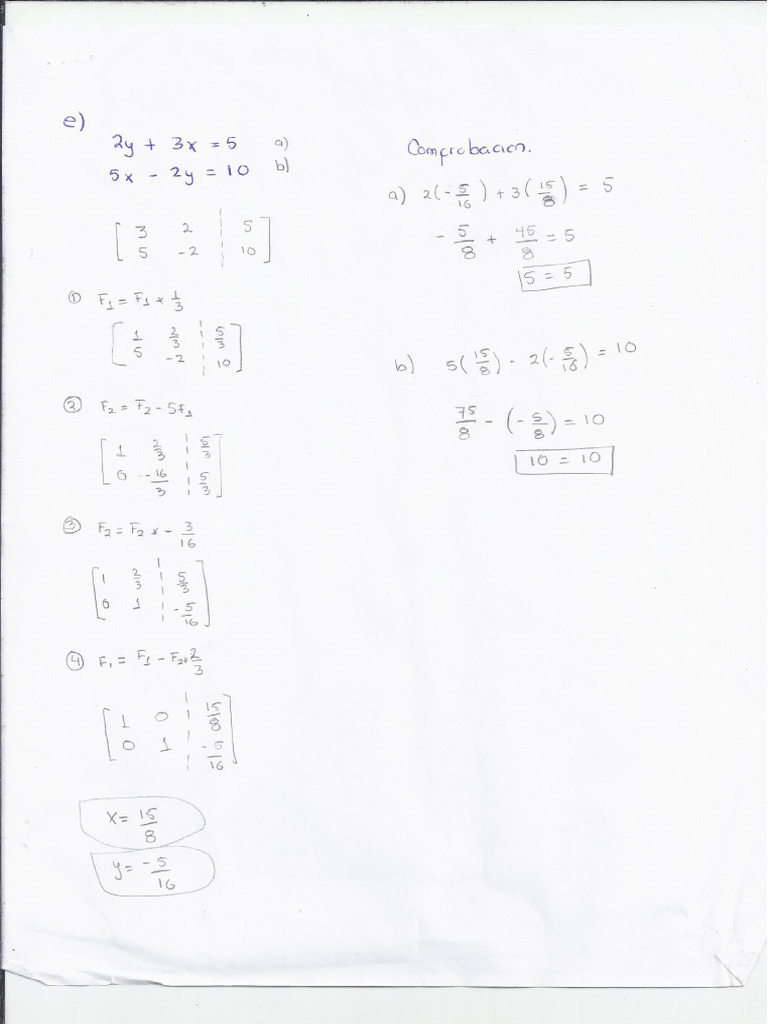 e)
2y + 3x = 5 a)
5x - 2y = 10 b)
[ 3 2 | 5
5 -2 | 10 ]
① F₁ = F₁ * 1/3
[ 1 2/3 | 5/3
5 -2 | 10 ]
② F₂ = F₂ - 5f₁
[ 1 2/3 | 5/3
0 -16/3 | 5/3 ]
③ F₂ = F₂ * - 3/16
[ 1 2/3 | 5/3
0 1 | -5/16 ]
④ F₁ = F₁ - F₂* 2/3
[ 1 0 | 15/8
0 1 | -5/16 ]
x = 15/8
y = -5/16
Comprobacion.
a) 2(-5/16) + 3(15/8) = 5
- 5/8 + 45/8 = 5
5 = 5
b) 5(15/8) - 2(-5/16) = 10
75/8 - (-5/8) = 10
10 = 10